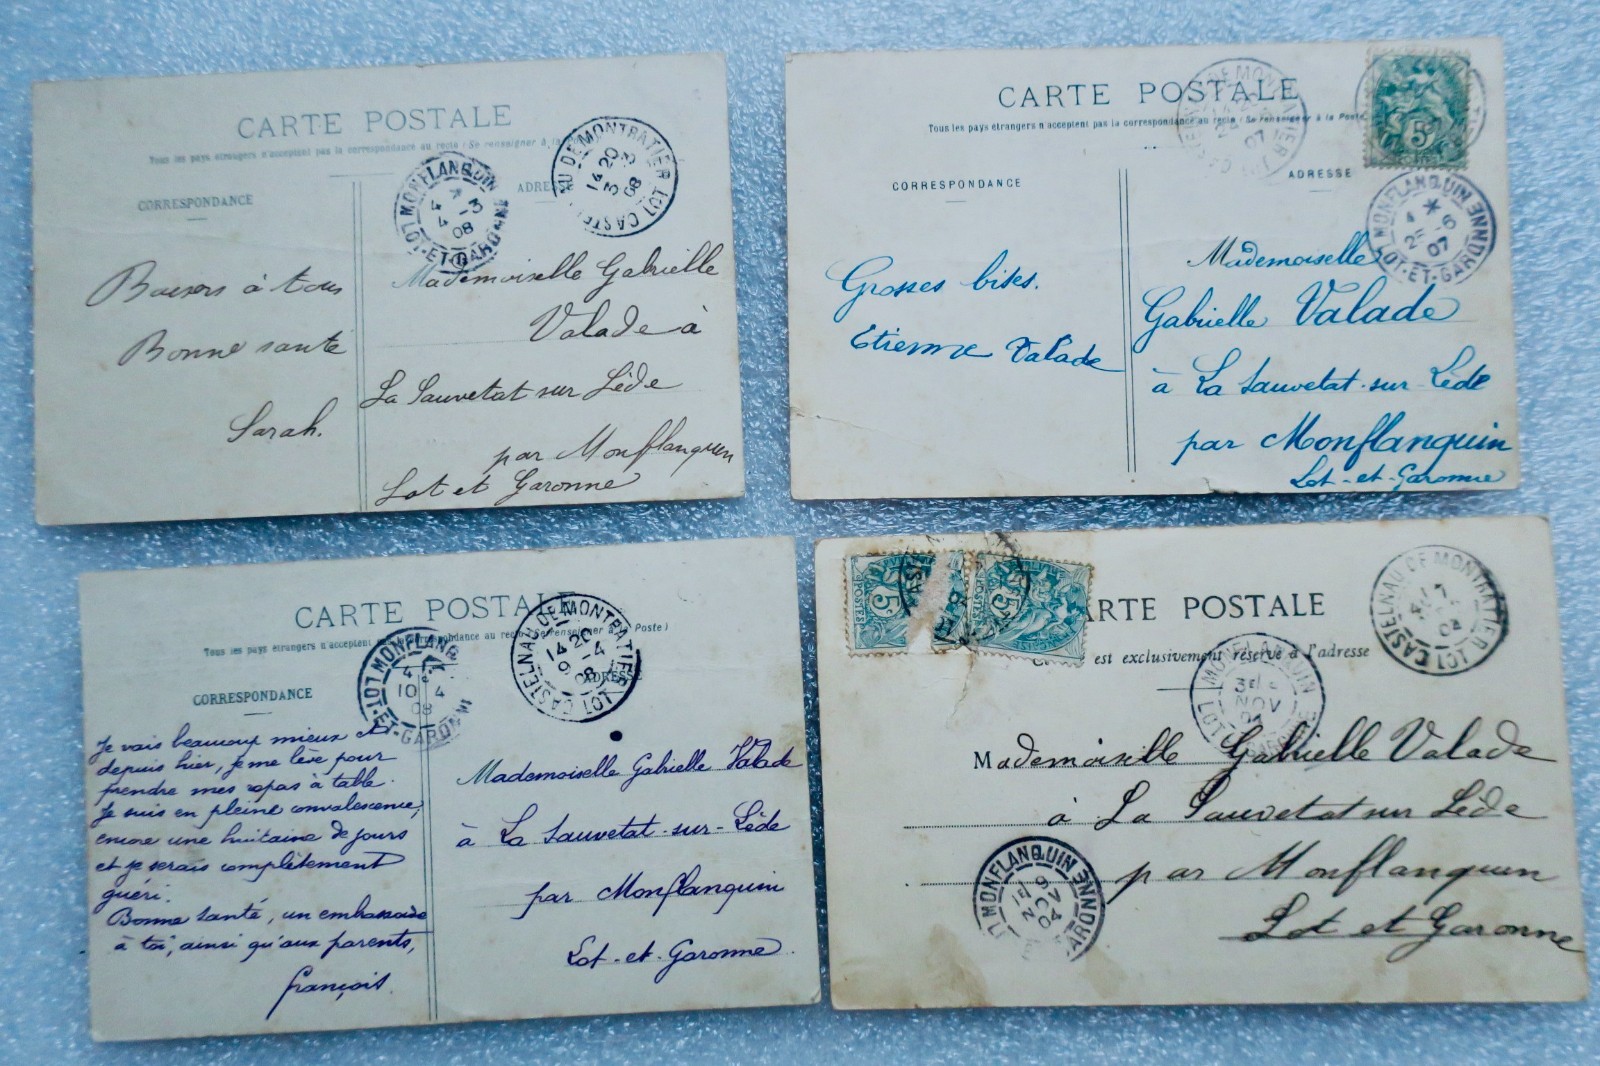 CARTE POSTALE
Tous les pays étrangers n'acceptent pas la correspondance au recto (Se renseigner à la
CORRESPONDANCE
ADRESSE
MONFLANQUIN
4 * 3
08
LOT-ET-GARONNE
CASTELNAU DE MONTRATIER (LOT)
14 20
3 -3
08
Baisers à tous
Bonne santé
Sarah.
Mademoiselle Gabrielle
Valade à
La Sauvetat sur Lède
par Monflanquin
Lot et Garonne
CARTE POSTALE
Tous les pays étrangers n'acceptent pas la correspondance au recto (Se renseigner à la Poste
CORRESPONDANCE
ADRESSE
DE MONTRATIER
07
5
MONFLANQUIN
-6
07
LOT-ET-GARONNE
Grosses bises.
Etienne Valade
Mademoiselle
Gabrielle Valade
à La Sauvetat-sur-Lède
par Monflanquin
Lot-et-Garonne
CARTE POSTALE
Tous les pays étrangers n'acceptent pas la correspondance au recto (Se renseigner à la Poste)
CORRESPONDANCE
ADRESSE
MONFLANQUIN
10 4
08
LOT-ET-GARONNE
CASTELNAU DE MONTRATIER (LOT)
14 20
9 -4
08
Je vais beaucoup mieux et
depuis hier, je me lève pour
prendre mes repas à table.
Je suis en pleine convalescence,
encore une huitaine de jours
et je serais complètement
guéri.
Bonne santé, un embrassade
à toi, ainsi qu'aux parents,
François.
Mademoiselle Gabrielle Valade
à La Sauvetat-sur-Lède
par Monflanquin
Lot-et-Garonne.
5
POSTES
5
CARTE POSTALE
est exclusivement réservé à l'adresse
CASTELNAU DE MONTRATIER (LOT)
04
MONFLANQUIN
NOV
04
LOT-ET-GARONNE
Mademoiselle Gabrielle Valade
à La Sauvetat sur Lède
par Monflanquin
Lot et Garonne
MONFLANQUIN
NOV
04
GARONNE